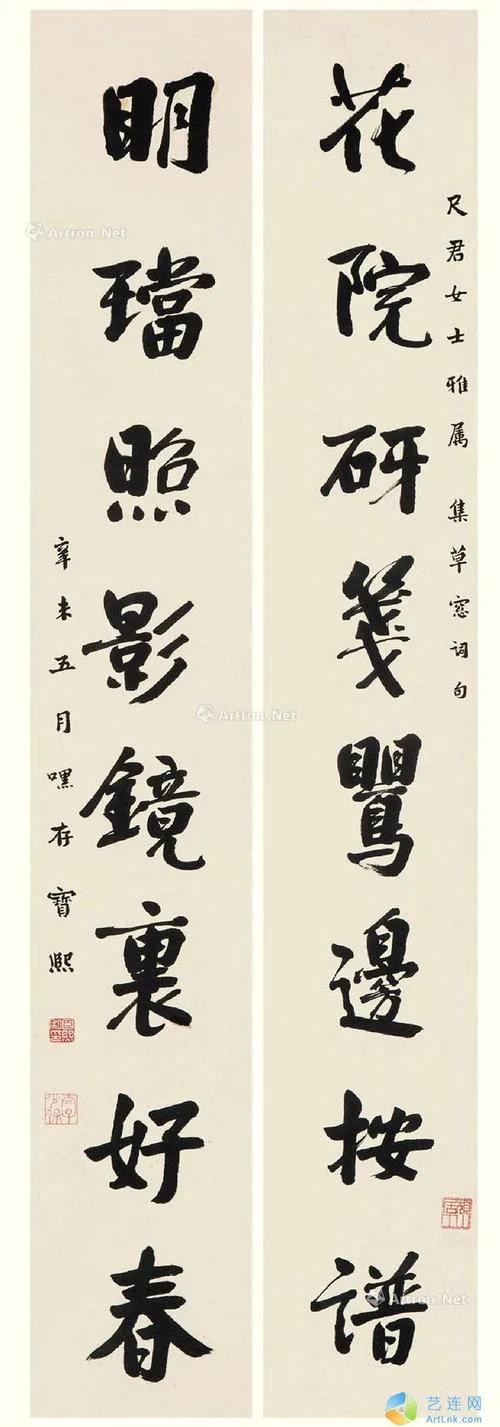 尺君女士雅属 集草窓词句
花院研箋鸎邊按譜
明璫照影鏡裏好春
辛未五月嘿存寶熙
Artron.Net
Artron.Net
Artron.Net
艺连网
ArtLnk.com